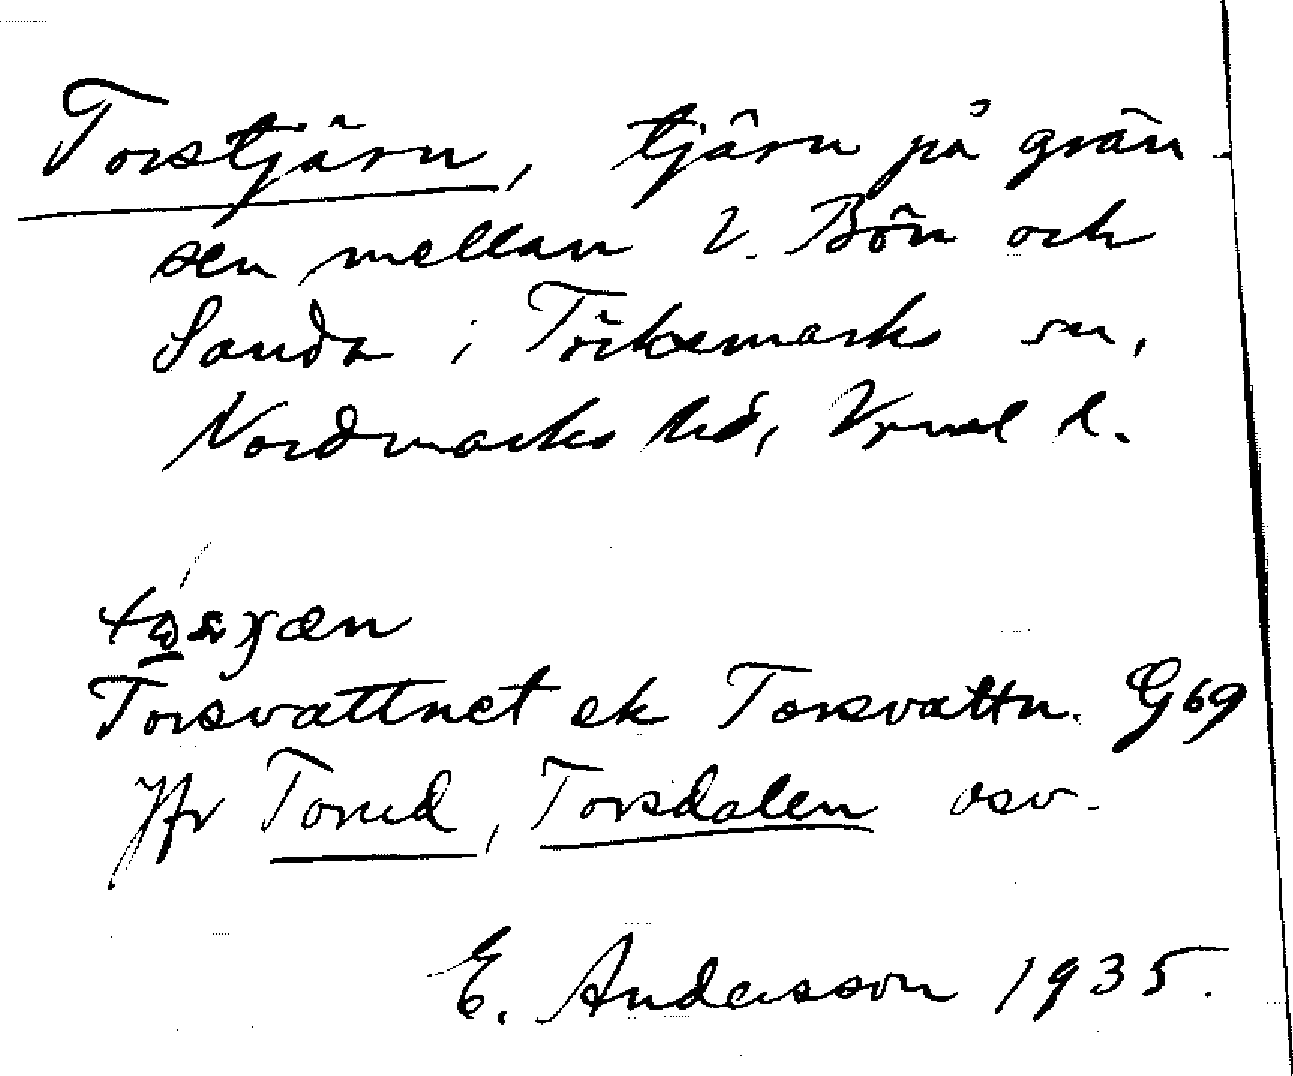 Torstjärn, tjärn på grän-
sen mellan V. Bön och
Sanda i Töcksmarks sn,
Nordmarks hd, Vrml l.
Torsvattnet ek Torsvattn. G69
Jfr Torud, Torsdalen osv.
E. Andersson 1935.